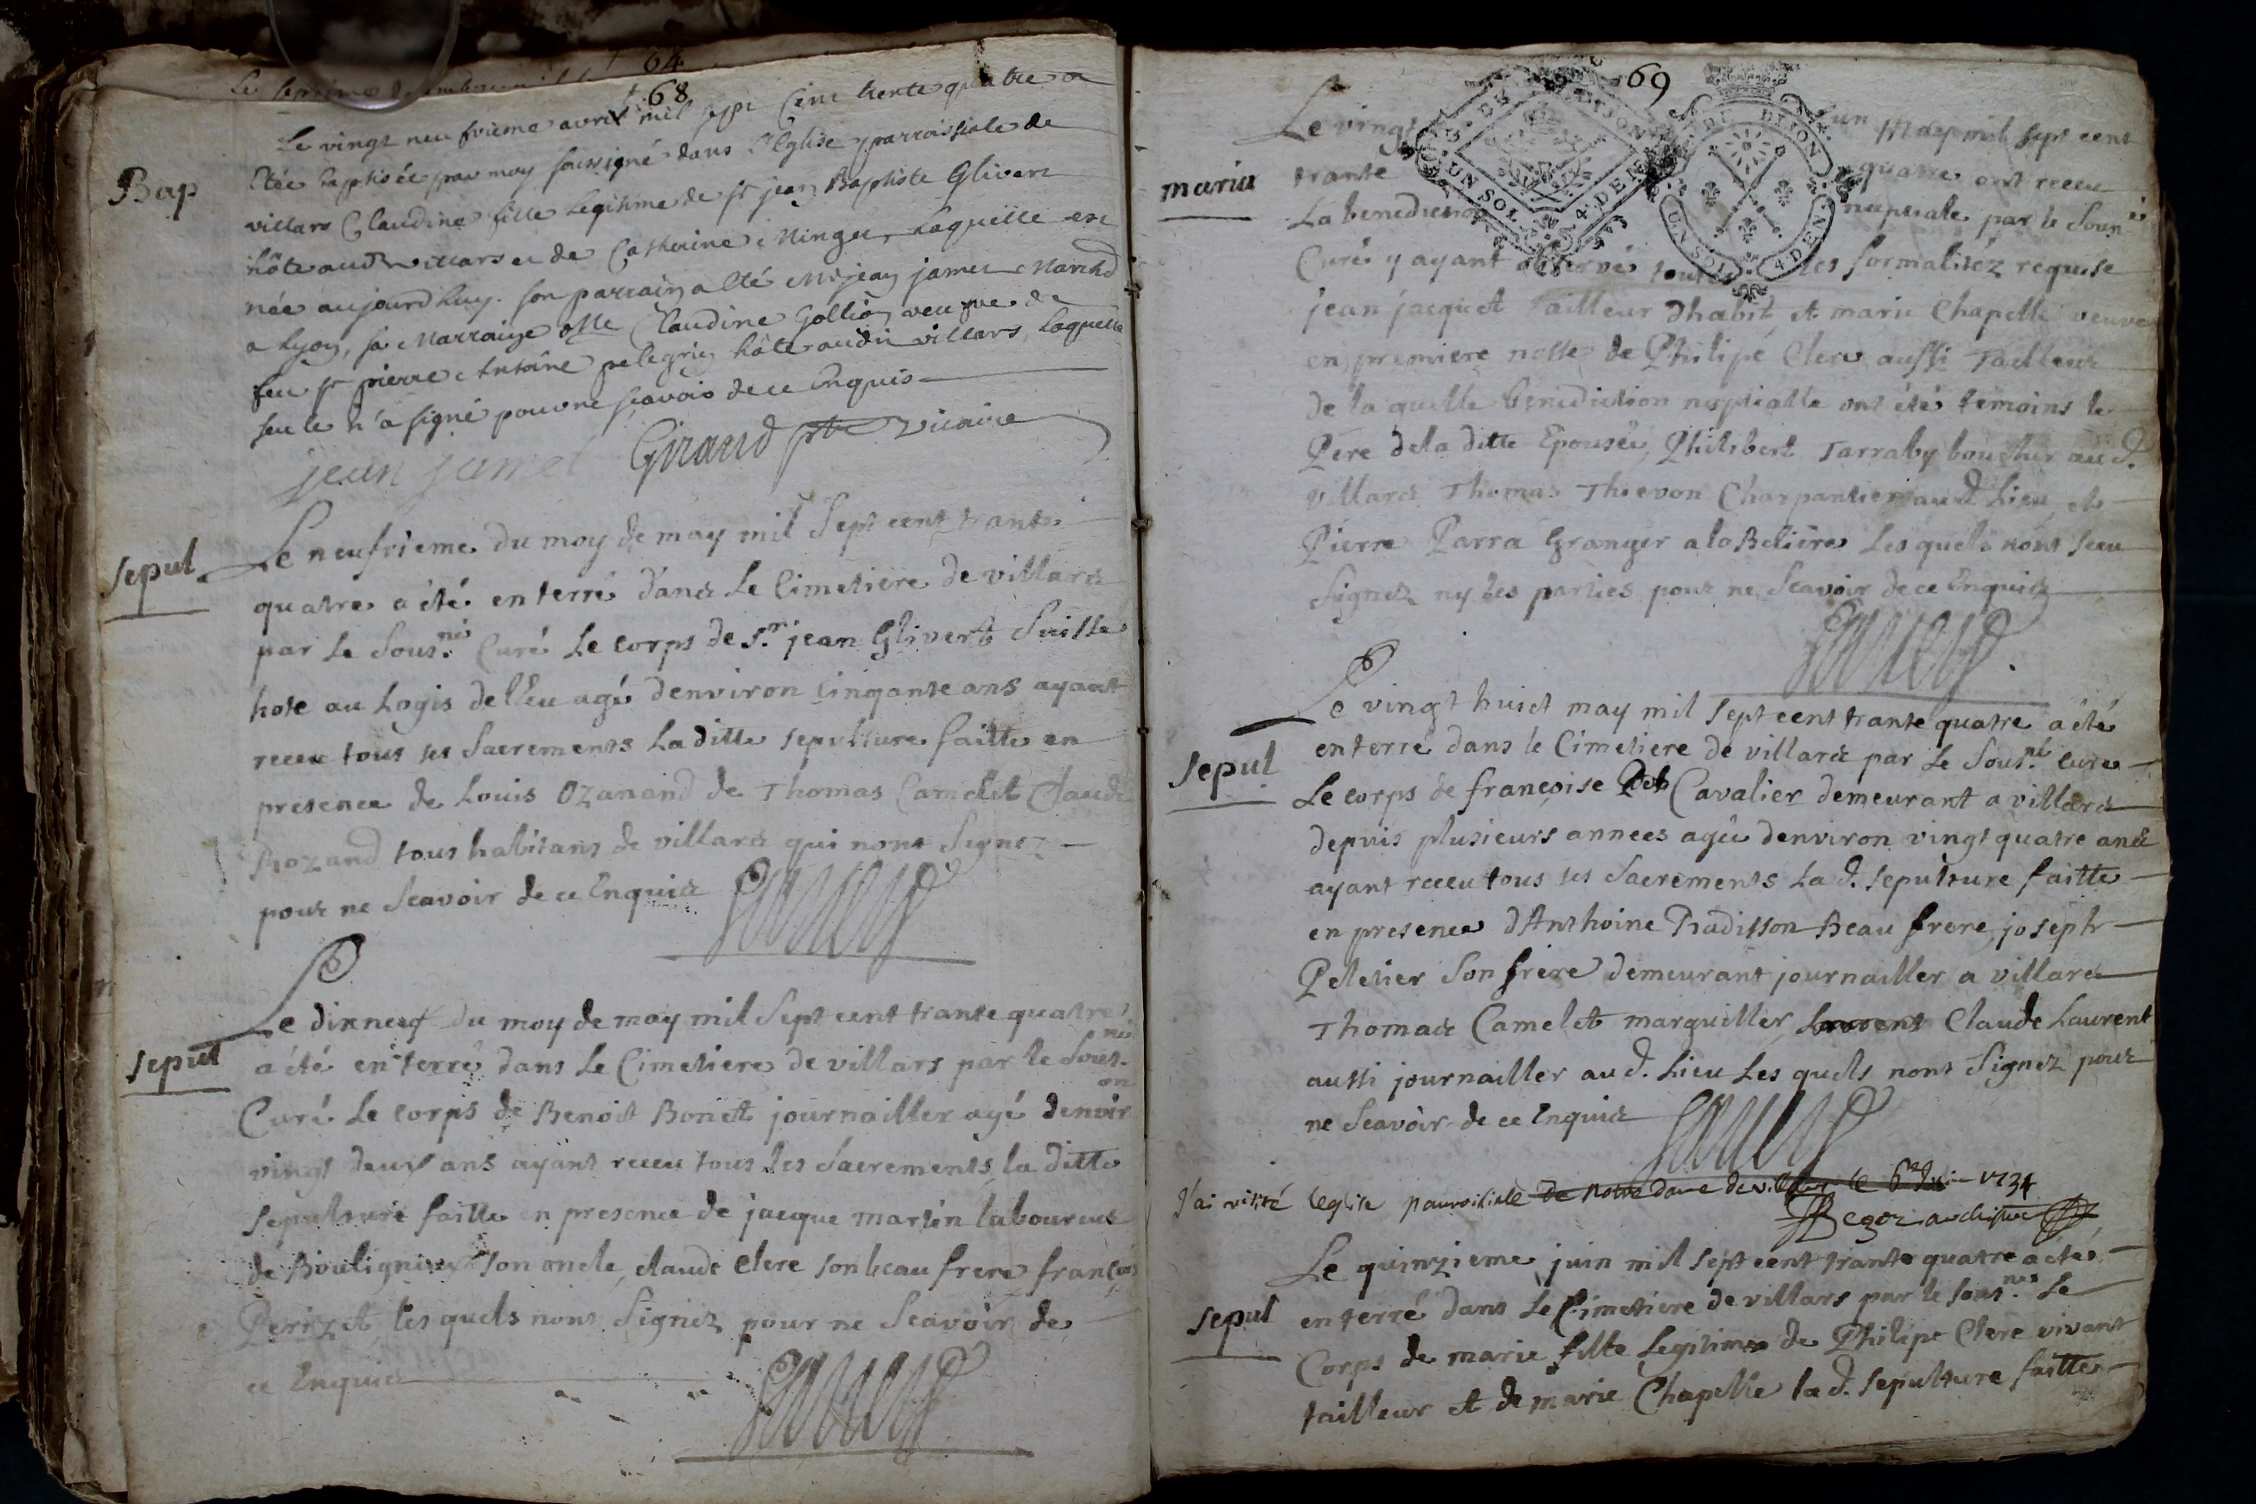 64
68
Bap
Le vingt neufvieme avril mil sept cent trente quatre a
été baptisée par moy soussigné dans l'Eglise parroissiale de
villars Claudine fille legitime de sr jean Baptiste Glivert
hôte audit villars et de Catherine Minget, laquelle est
née aujourdhuy. son parrain a été Mr jean jamet March.d
a Lyon, sa Marraine Claudine Gollion veufve de
feu sr pierre Antoine pelegrin hôte audit villars, laquelle
seule n'a signé pour ne sçavoir de ce Enquis
jean jamet Giraud ptre vicaire
sepul
Le neufvieme du moy de may mil Sept cent trante
quatre a été enterré dans Le Cimetiere de villars
par Le Sous.né Curé Le corps de S.r jean Glivert Suisse
hote au Logis de l'Eu agé denviron Cinqante ans ayant
receu tous ses Sacrements La ditte sepulture faitte en
presence de Louis Ozanand de Thomas Camelet Claude
Rozand tous habitans de villars qui nont Signez
pour ne Scavoir de ce Enquis
sepul
Le dixneuf du moy de may mil Sept cent trante quatre
a été enterré dans Le Cimetiere de villars par le Sous.né
Curé Le corps de Benoit Bonet journailler agé denviron
vingt deux ans ayant receu tous les Sacrements la ditte
Sepulture faitte en presence de jacque martin laboureur
de Boulignieux son oncle, claude Clerc son beau frere françois
Perizet les quels nont Signez pour ne Scavoir de
ce Enquis
69
G. DE DIJON
UN SOL 4 DEN
DE DIJON
UN SOL 4 DEN
maria
Le vingt un may mil sept cent
trante quatre ont receu
La benediction nuptiale par le Sous.né
Curé y ayant observé toutes les formalitéz requise
jean jacquet Tailleur dhabit, et marie Chapelle veuve
en premiere nosse de Philipe Clerc aussi Tailleur
de la quelle benediction nuptialle ont été temoins le
Pere dela ditte Epousée, Philibert Tarraby au d.
villars Thomas Thievon Charpantier au d. Lieu, et
Pierre Parra Granger a la Beliere Les quels nont sceu
Signez ny les parties pour ne Scavoir de ce Enquis
sepul
Le vingt huict may mil sept cent trante quatre a été
enterré dans le Cimetiere de villars par Le Sous.né curé
Le corps de françoise Cavalier demeurant a villars
depuis plusieurs annees agée denviron vingt quatre ans
ayant receu tous ses Sacrements La d. sepulture faitte
en presence dAnthoine Radisson Beau frere, joseph
Peletier Son frere demeurant journailler a villars
Thomas Camelet marguiller, Laurent Claude Laurent
aussi journailler au d. Lieu Les quels nont Signez pour
ne Scavoir de ce Enquis
J'ai visité leglise parroissiale de notre dame de villars le 6e juin 1734
sepul
Le quinzieme juin mil sept cent trante quatre a été
enterré dans Le Cimetiere de villars par le sous.né Le
Corps de marie fille Legitime de Philipe Clerc vivant
tailleur et de marie Chapelle la d. sepulture faitte